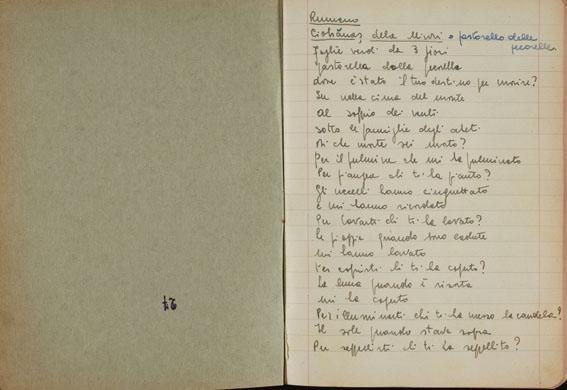 Rumeno
Ciobănaș dela Miori • pastorello delle
pecorelle
Foglie verdi da 3 fiori
pastorello dalla pecorella
dove è stato il tuo destino per morire?
Su nella cima del monte
al soffio dei venti
sotto le famiglie degli abeti
Di che morte sei morto?
Per il fulmine che mi ha fulminato
Per piangere chi ti ha pianto?
Gli uccelli hanno cinguettato
e mi hanno ricordato
Per lavarti chi ti ha lavato?
Le piogge quando sono cadute
mi hanno lavato
Per coprirti chi ti ha coperto?
La luna quando è risorta
mi ha coperto
Per illuminarti chi ti ha messo la candela?
Il sole quando stava sopra
Per seppellirti chi ti ha seppellito?
24